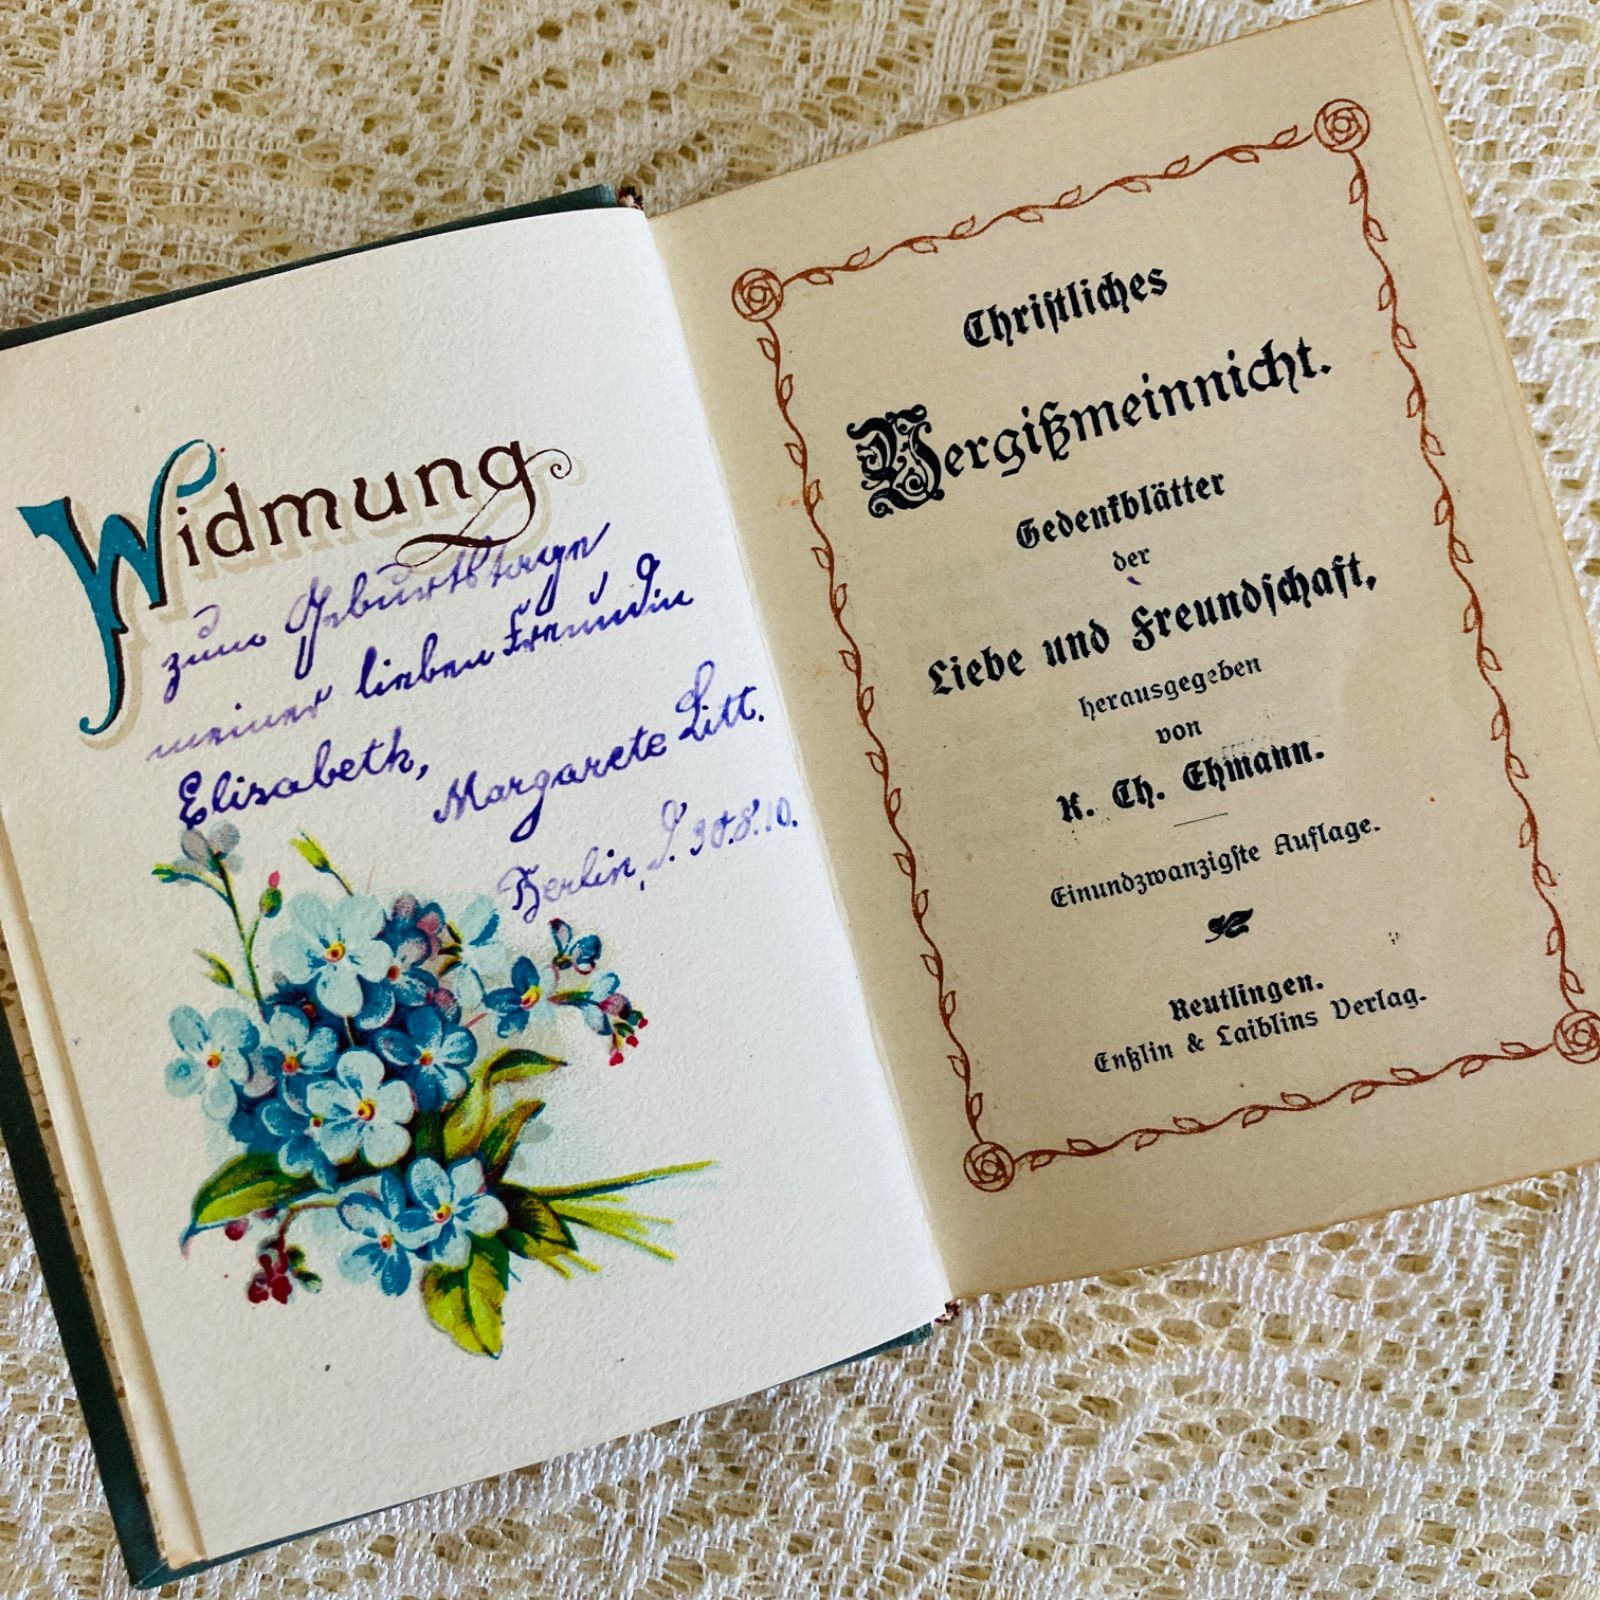 Widmung
zum Geburtstage
meiner lieben Freundin
Elisabeth,
Margarete Litt.
Berlin, d. 30.8.10.
Christliches
Vergißmeinnicht.
Gedenkblätter
der
Liebe und Freundschaft,
herausgegeben
von
K. Ch. Ehmann.
Einundzwanzigste Auflage.
Reutlingen.
Enßlin & Laiblins Verlag.